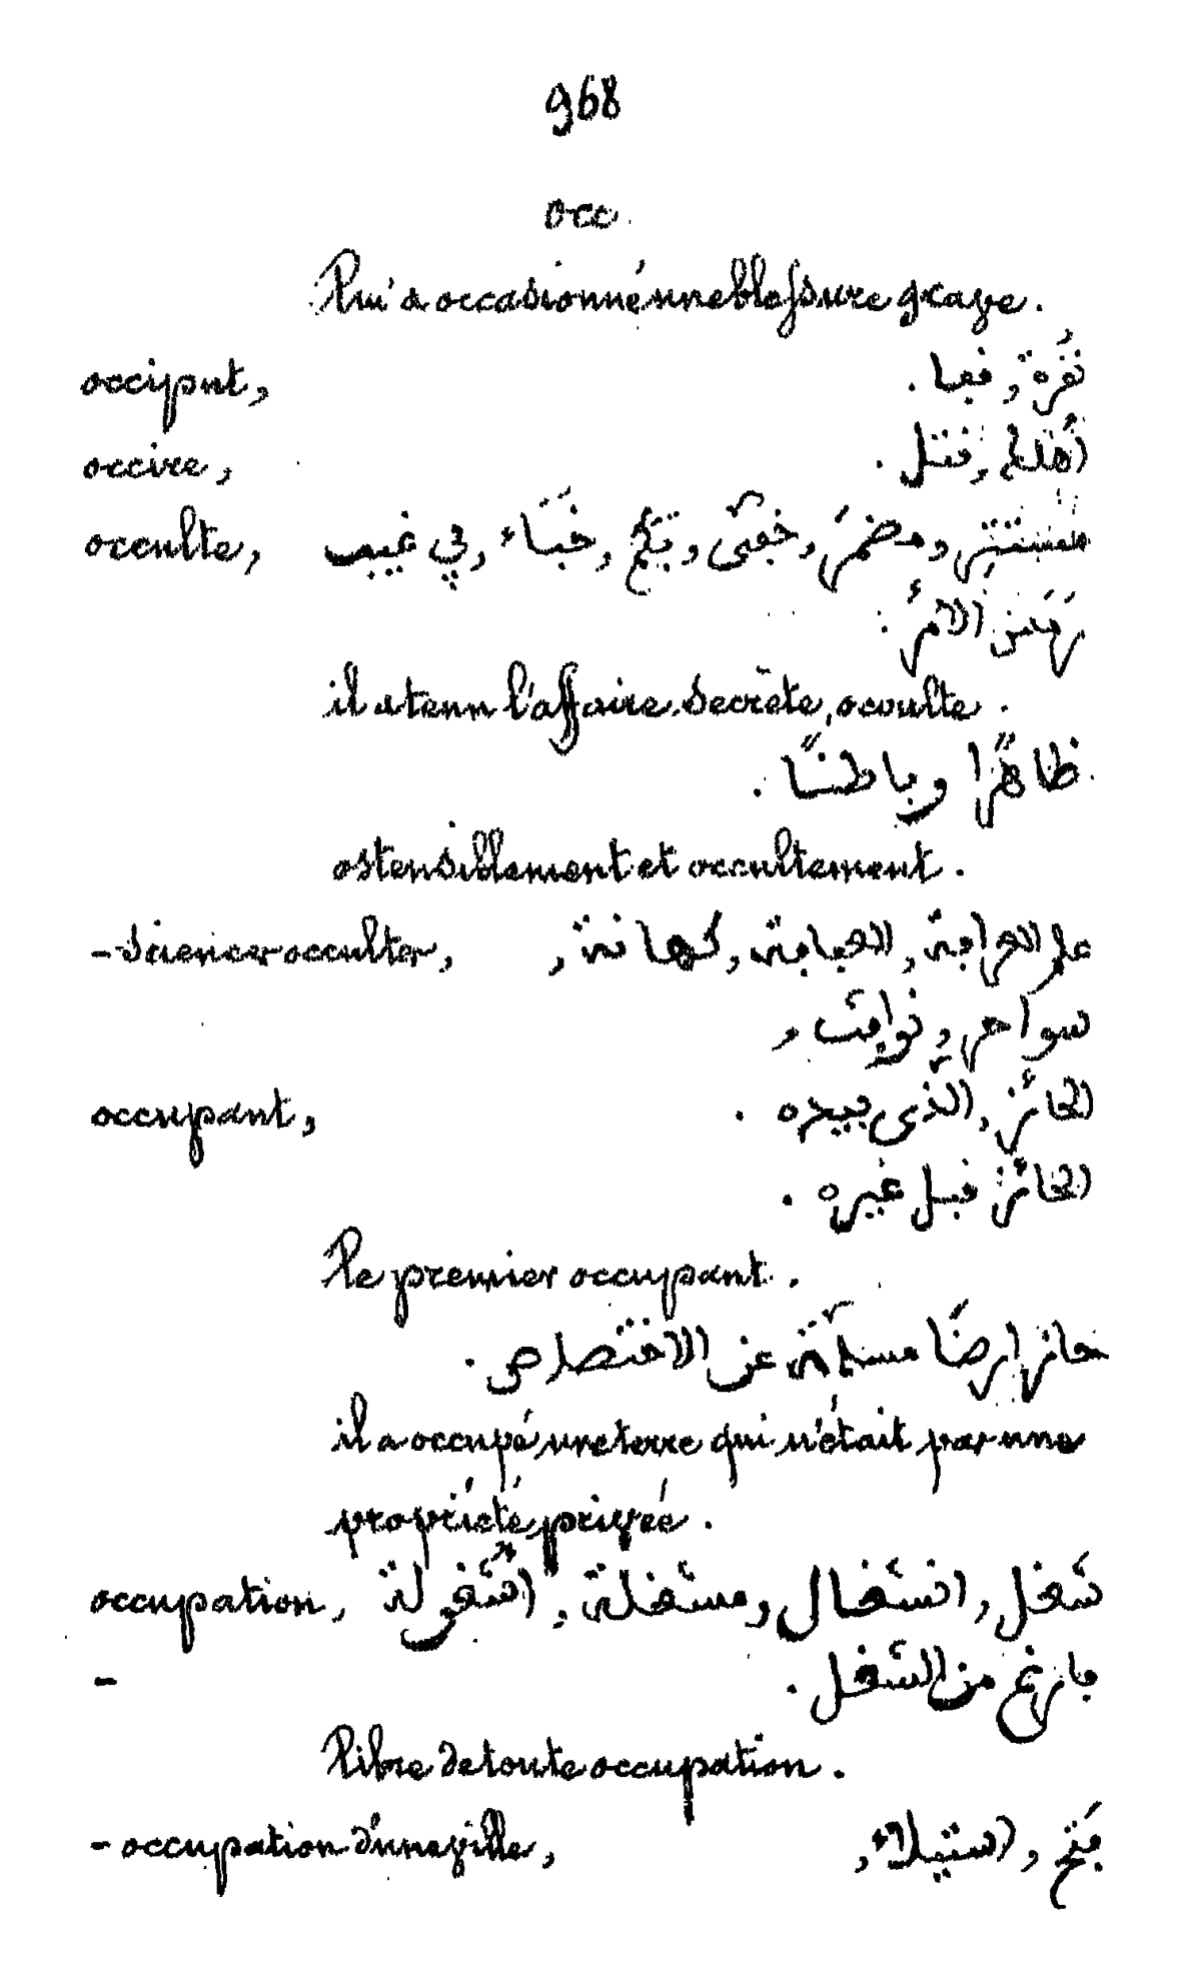 968
occ.
lui a occasionné une blessure grave.
occiput, نقرة, قفا.
occire, أهلك, قتل.
occulte, مستتر, مضمر, خفي, خباء, في غيب
الأمر.
il a tenu l'affaire secrète, occulte.
ظاهرًا وباطنًا.
ostensiblement et occultement.
- sciences occultes, علم العرافة, العيافة, كهانة,
سواحر,
occupant, الحائز, الذى بيده.
الحائز قبل غيره.
le premier occupant.
حائز ارضًا عن الاختصاص.
il a occupé une terre qui n'était pas une
propriété privée.
occupation, شغل, انشغال, مشغلة, اشغولة
- من الشغل.
libre de toute occupation.
- occupation d'une ville, فتح, استيلاء,